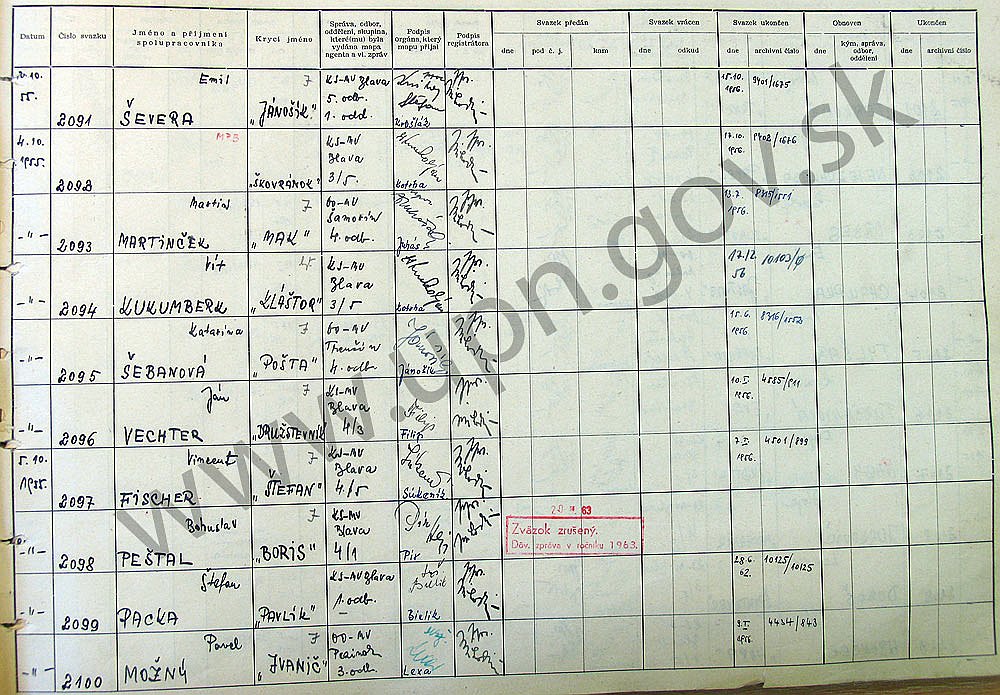 Datum
Číslo svazku
Jméno a příjmení spolupracovníka
Krycí jméno
Správa, odbor, oddělení, skupina, které(mu) byla vydána mapa agenta a vl. zpráv
Podpis orgána, který mapu přijal
Podpis registrátora
Svazek předán
dne
pod č. j.
kam
Svazek vrácen
dne
odkud
Svazek ukončen
dne
archivní číslo
Obnoven
dne
kým, správa, odbor, oddělení
Ukončen
dne
archivní číslo
2091 Emil ŠEVERA 7 „JÁNOŠÍK" KS-MV Blava 5. odb. 1. odd. 15.10. 1956. 9401/1675
4.10. 1955. 2092 „ŠKOVRÁNOK" KS-MV Blava 3/5. Kotrha 17.10. 1956. 9402/1676
-"- 2093 Martin MARTINČEK 7 „MAK" OO-MV Šamorín 4. odb. Juhás 1956.
-"- 2094 Vít KUKUMBERK „KLÁŠTOR" KS-MV Blava 3/5 Kotrha 17/2 56 10103/0
-"- 2095 Katarína ŠEBANOVÁ 7 „POŠTA" OO-MV Trenčín 4. odb. Jánošík 15.6. 1956.
-"- 2096 Ján VECHTER 7 „DRUŽSTEVNÍK" KS-MV Blava 4/3 Filip 10.I. 1956. 4585/911
5.10. 1955. 2097 Vincent FISCHER 7 „ŠTEFAN" KS-MV Blava 4/5 Sukeník 7.I. 1956. 4501/899
-"- 2098 Bohuslav PEŠTAL 7 „BORIS" KS-MV Blava 4/1 Pír
63
Zväzok zrušený.
Dôv. zpráva v ročníku 1963.
-"- 2099 Štefan PACKA „PAVLÍK" KS-MV Blava 1. odb. Bielik 28.6. 62. 10125/10125
-"- 2100 Pavel MOŽNÝ 7 „IVANIČ" OO-MV 3. odb. Lexa 1956. 4434/843
www.upn.gov.sk